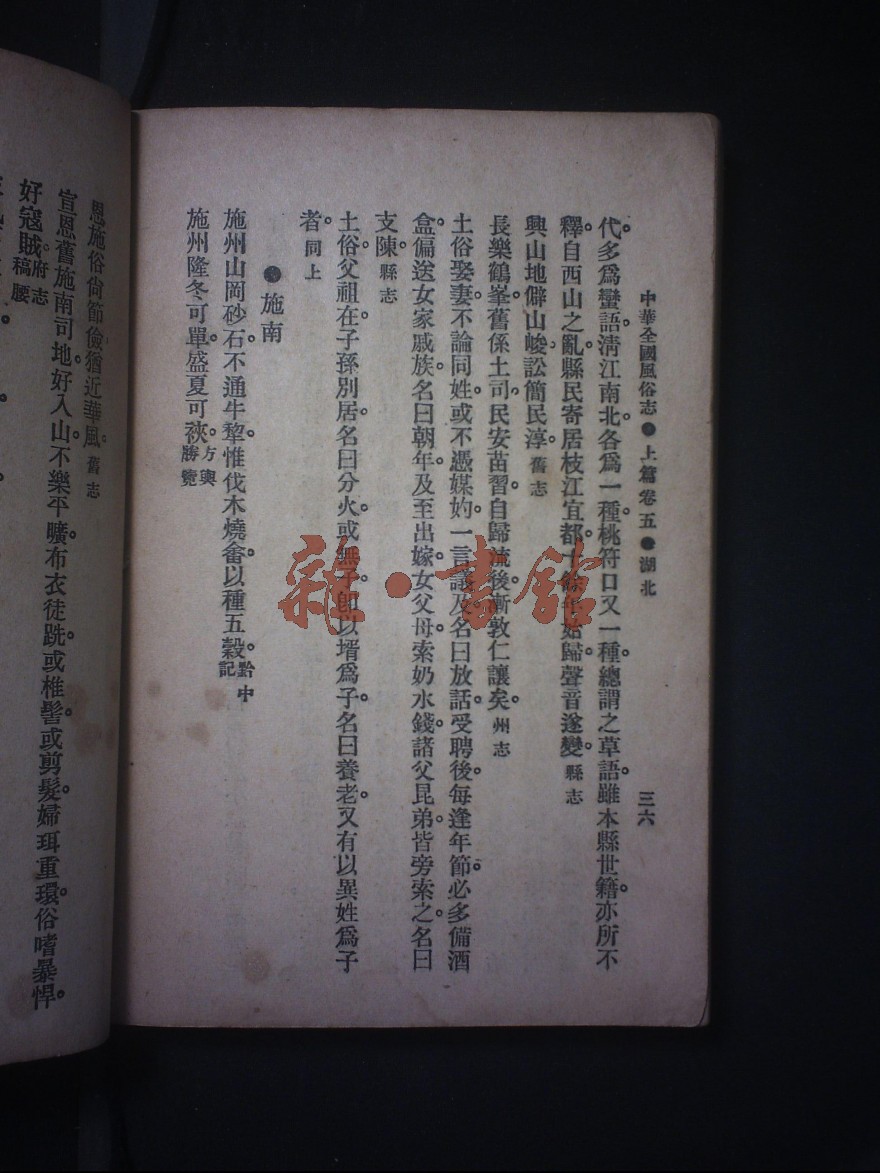 中華全國風俗志●上篇卷五●湖北 三六
代。多爲蠻語。淸江南北。各爲一種。桃符口又一種。總謂之草語。雖本縣世籍。亦所不
釋。自西山之亂。縣民寄居枝江宜都十餘年始歸。聲音遂變。縣志
興山地僻山峻。訟簡民淳。舊志
長樂鶴峯。舊係土司。民安苗習。自歸流後。漸敦仁讓矣。州志
土俗娶妻。不論同姓。或不憑媒妁。一言議及。名曰放話。受聘後。每逢年節。必多備酒
盒。偏送女家戚族。名曰朝年。及至出嫁。女父母索奶水錢。諸父昆弟皆旁索之。名曰
支陳。縣志
土俗父祖在。子孫別居。名曰分火。或無子。卽以壻爲子。名曰養老。又有以異姓爲子
者。同上
●施南
施州山岡砂石。不通牛犂。惟伐木燒畬。以種五穀。黔中記
施州隆冬可單。盛夏可裌。方輿勝覽
恩施俗尙節儉。猶近華風。舊志
宣恩舊施南司地。好入山。不樂平曠。布衣徒跣。或椎髻。或剪髮。婦珥重環。俗嗜暴悍。
好寇賊。府志稿
雜·書館